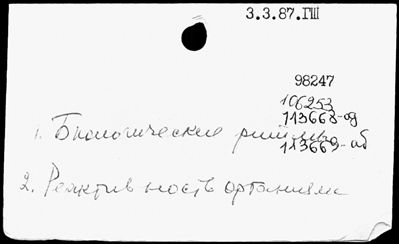 3.3.87.ГШ
98247
106253
113668-од
1. Биологические ритмы
113669-аб
2. Реактивность организма